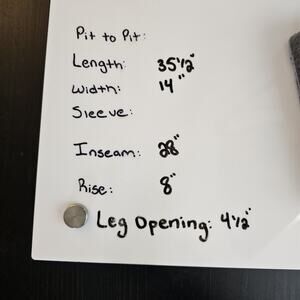 Pit to Pit:
Length: 35 1/2"
Width: 14"
Sleeve:
Inseam: 28"
Rise: 8"
Leg Opening: 4 1/2"